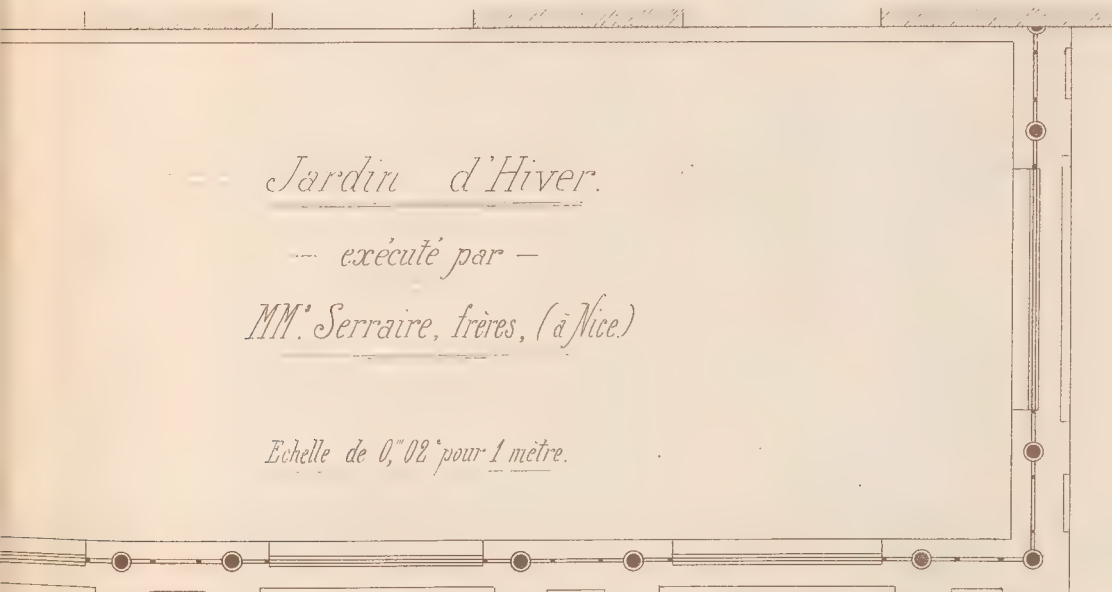 Jardin d'Hiver.
— exécuté par —
MM.s Serraire, frères, (à Nice.)
Echelle de 0,m 02c pour 1 mètre.